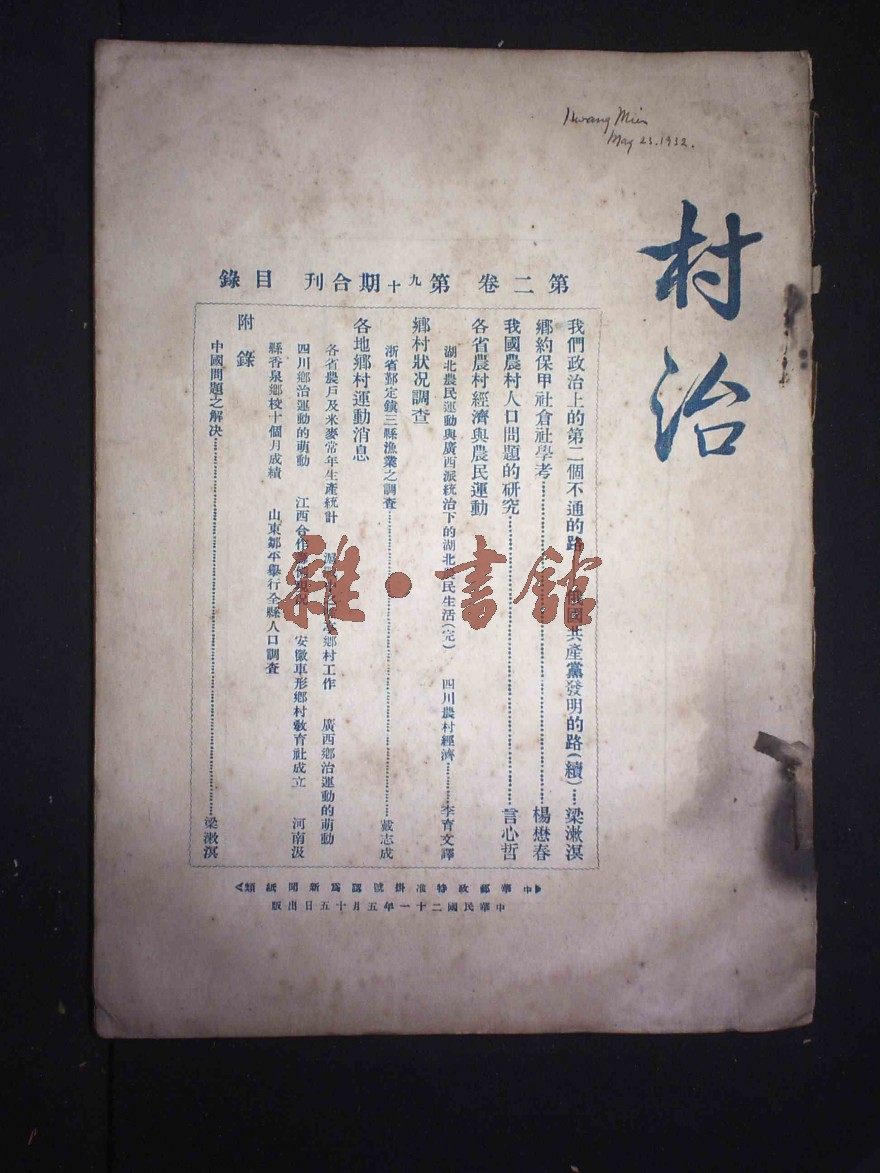 Kwang Mien
May 23. 1932.
村治
第二卷 第九十期合刊 目錄
我們政治上的第二個不通的路 我國共產黨發明的路(續)……梁漱溟
鄉約保甲社倉社學考……楊懋春
我國農村人口問題的研究……言心哲
各省農村經濟與農民運動
湖北農民運動與廣西派統治下的湖北農民生活(完) 四川農村經濟……李育文譯
鄉村狀况調查
浙省鄞定鎮三縣漁業之調查……戴志成
各地鄉村運動消息
各省農戶及米麥常年生產統計 鄉村工作 廣西鄉治運動的萌動
四川鄉治運動的萌動 江西合作 安徽車形鄉村教育社成立 河南汲
縣香泉鄉校十個月成績 山東鄒平舉行全縣人口調查
附錄
中國問題之解决……梁漱溟
中華郵政特准掛號認爲新聞紙類
中華民國二十一年五月十五日出版
雜·書館